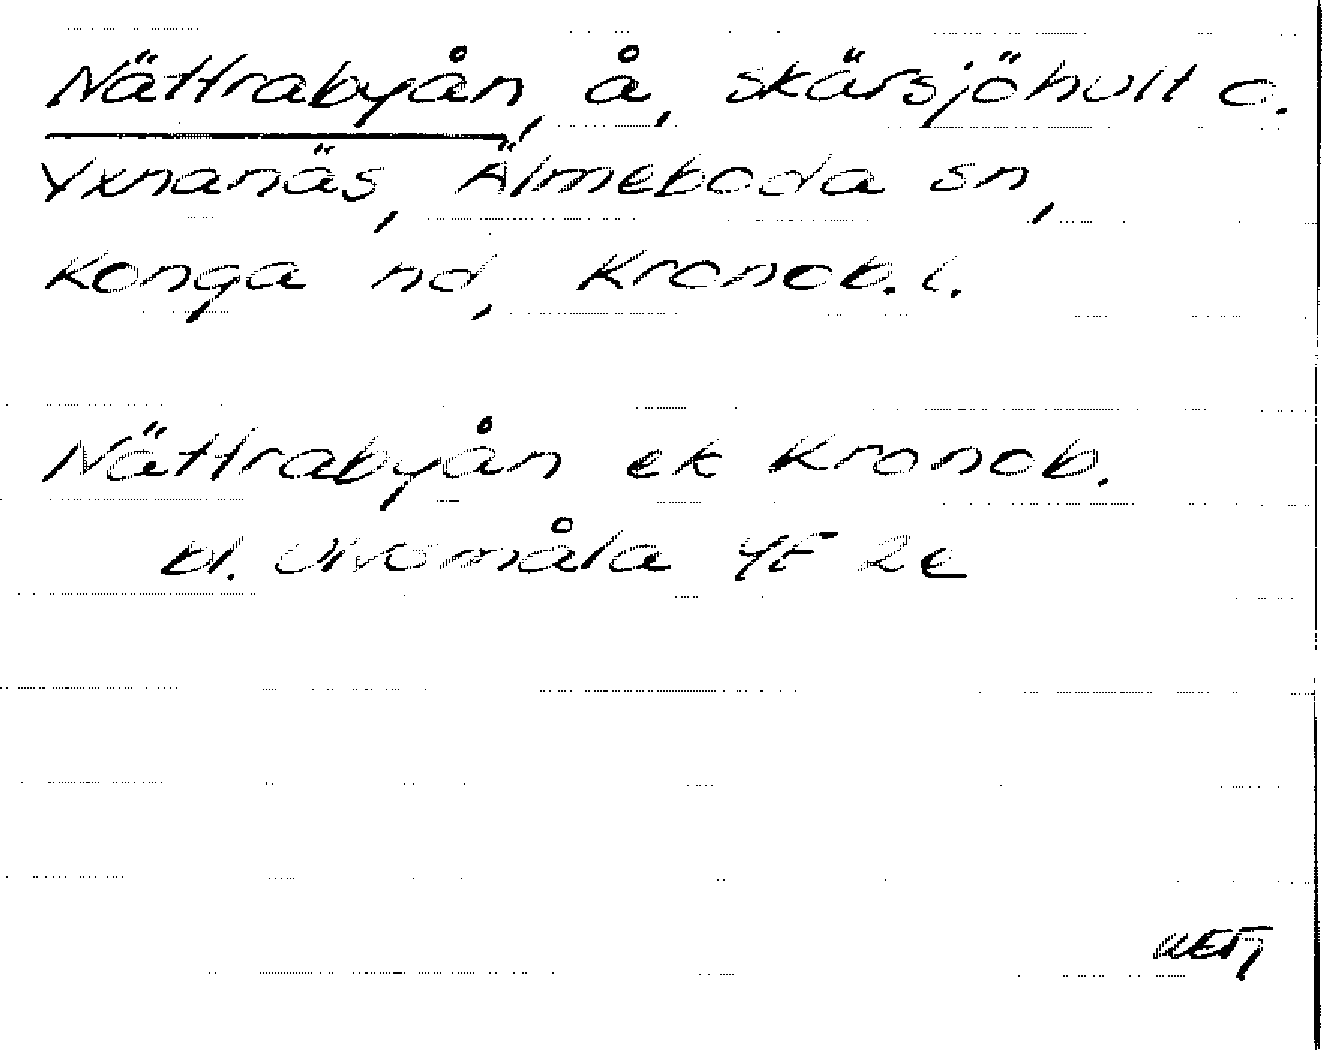 Nättrabyån, å, Skärsjöhult o.
Yxnanäs, Älmeboda sn,
Konga hd, Kronob. l.
Nättrabyån ek Kronob.
bl. Ulvamåla 4F 2e